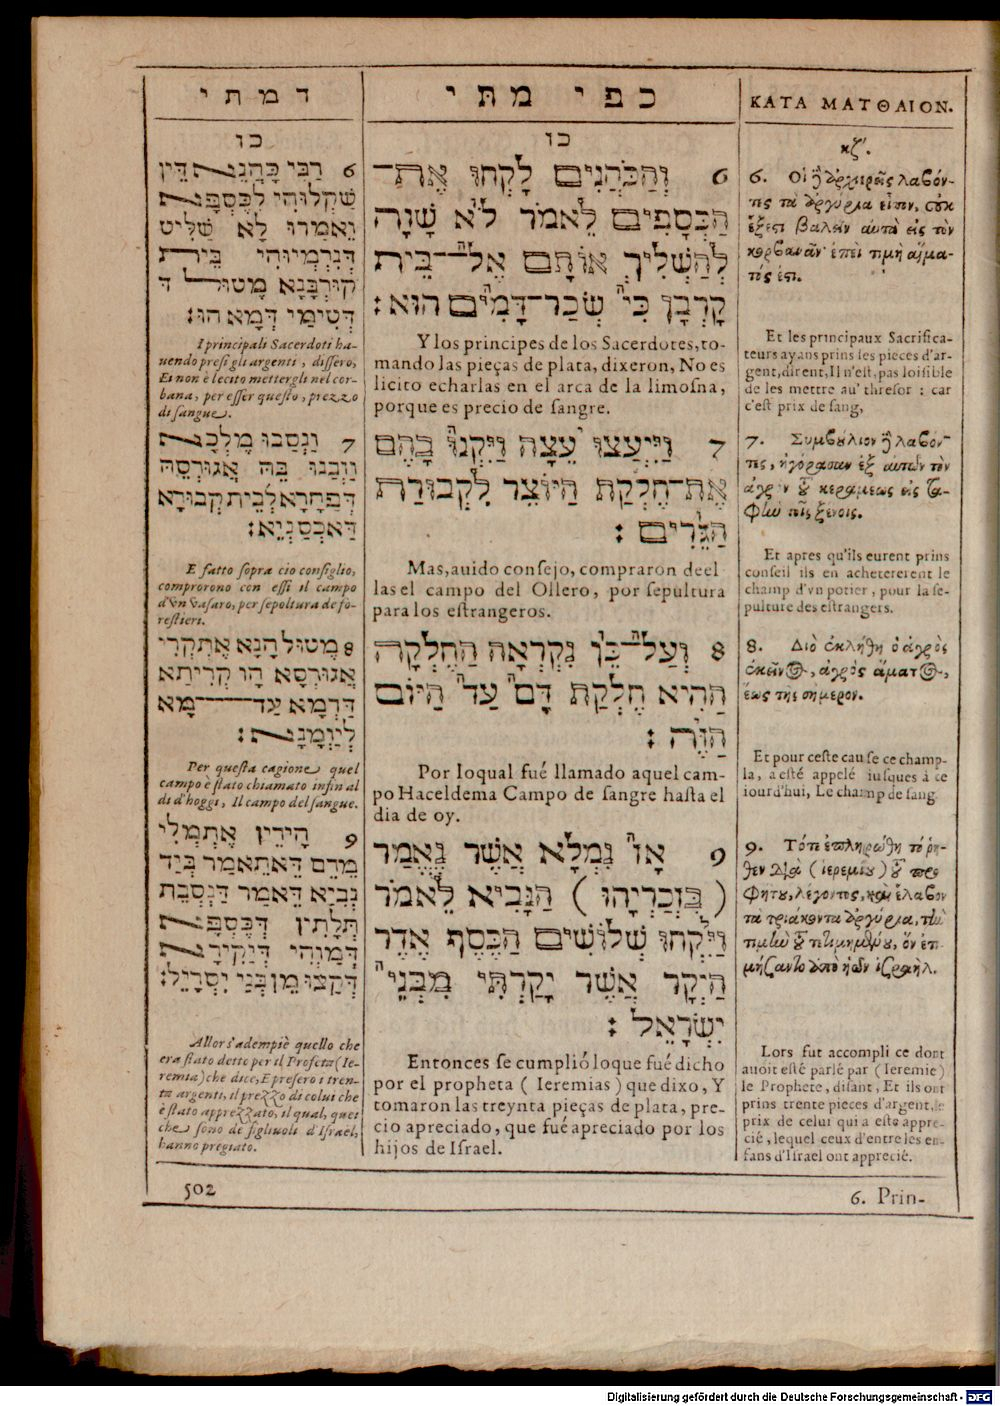 דמתי
כו
6 רַבִּי כָּהֲנֵא דֵּין
שַׁקְלוּהִי לְכֶּסְפָּא
וֵאמַרוּ לָא שַׁלִּיט
דְּנִרְמְיוּהִי בֵּית
קוּרְבָּנָא מֶטוּל ד
דְּטִימַי דְּמָא הוּ׃
I principali Sacerdoti ha-
uendo presi gli argenti, dissero,
Ei non è lecito mettergli nel cor-
bana, per esser questo, prezzo
di sangue.
7 וַנְסַבוּ מֶלְכָּא
וַזְבַנוּ בֵּהּ אֲגוּרְסֵהּ
דְּפָחָרָא לְבֵית קְבוּרָא
דַּאכְסַנְיֵא׃
E fatto sopra cio consiglio,
comprorono con essi il campo
d'vn vasaro, per sepoltura de fo-
restieri.
8 מֶטוּל הָנָא אֶתְקְרִי
אֲגוּרְסָא הָו קְרִיתָא
דַּדְמָא עַד־מָא
לְיַוְמָנָא׃
Per questa cagione quel
campo è stato chiamato infin al
di d'hoggi, Il campo del sangue.
9 הָידֵין אֶתְמְלִי
מֶדֶם דֶּאתֶאמַר בְּיַד
נְבִיָא דֶּאמַר דַּנְסְבֵת
תְּלָתִין דְּכֶסְפָּא
דְּמָוְהִי דְּיַקִירָא
דְּקַצוּ מֶן בְּנַי יִסְרָיֵל׃
Allor s'adempiè quello che
era stato detto per il Profeta (Ie-
remia) che dice, E presero i tren-
ta argenti, il prezzo di colui che
è stato apprezzato, il qual, quei
che sono de figliuoli d'Israel,
hanno pregiato.
502
כפי מתי
כו
6 וְהַכֹּהֲנִים לָקְחוּ אֶת־
הַכְּסָפִים לֵאמֹר לֹא שָׁוָה
לְהַשְׁלִיךְ אוֹתָם אֶל־בֵּית
קָרְבָּן כִּי שְׂכַר־דָּמִים הוּא׃
Y los principes de los Sacerdotes, to-
mando las pieças de plata, dixeron, No es
licito echarlas en el arca de la limosna,
porque es precio de sangre.
7 וַיִּיעֲצוּ עֵצָה וַיִּקְנוּ בָּהֶם
אֶת־חֶלְקַת הַיּוֹצֵר לִקְבוּרַת
הַגֵּרִים׃
Mas, auido consejo, compraron deel
las el campo del Ollero, por sepultura
para los estrangeros.
8 וְעַל־כֵּן נִקְרְאָה הַחֶלְקָה
הַהִיא חֶלְקַת דָּם עַד הַיּוֹם
הַזֶּה׃
Por loqual fué llamado aquel cam-
po Haceldema Campo de sangre hasta el
dia de oy.
9 אָז נִמְלָא אֲשֶׁר נֶאֱמַר
(בִּזְכַרְיָהוּ) הַנָּבִיא לֵאמֹר
וַיִּקְחוּ שְׁלוֹשִׁים הַכֶּסֶף אֶדֶר
הַיְקָר אֲשֶׁר יָקַרְתִּי מִבְּנֵי
יִשְׂרָאֵל׃
Entonces se cumplió loque fué dicho
por el propheta (Ieremias) que dixo, Y
tomaron las treynta pieças de plata, pre-
cio apreciado, que fué apreciado por los
hijos de Israel.
ΚΑΤΑ ΜΑΤΘΑΙΟΝ.
κζʹ.
6. Οἱ δὲ ἀρχιερεῖς λαβόν-
τες τὰ ἀργύρια εἶπον, οὐκ
ἔξεστι βαλεῖν αὐτὰ εἰς τὸν
κορβανᾶν· ἐπεὶ τιμὴ αἵμα-
τός ἐστι.
Et les principaux Sacrifica-
teurs ayans prins les pieces d'ar-
gent, dirent, Il n'est, pas loisible
de les mettre au' thresor : car
c'est prix de sang,
7. Συμβούλιον δὲ λαβόν-
τες, ἠγόρασαν ἐξ αὐτῶν τὸν
ἀγρὸν τοῦ κεραμέως εἰς τα-
φὴν τοῖς ξένοις.
Et apres qu'ils eurent prins
conseil ils en achetererent le
champ d'vn potier, pour la se-
pulture des estrangers.
8. Διὸ ἐκλήθη ὁ ἀγρὸς
ἐκεῖνος, ἀγρὸς αἵματος,
ἕως τῆς σήμερον.
Et pour ceste cause ce champ-
la, a esté appelé iusques à ce
iourd'hui, Le champ de sang.
9. Τότε ἐπληρώθη τὸ ῥη-
θὲν διὰ (ἱερεμίου) τοῦ προ-
φήτου, λέγοντος, καὶ ἔλαβον
τὰ τριάκοντα ἀργύρια, τὴν
τιμὴν τοῦ τετιμημένου, ὃν ἐτι-
μήσαντο ἀπὸ υἱῶν ἰσραήλ.
Lors fut accompli ce dont
auoit esté parlé par (Ieremie)
le Prophete, disant, Et ils ont
prins trente pieces d'argent, le
prix de celui qui a esté appre-
cié, lequel ceux d'entre les en-
fans d'Israel ont apprecié.
6. Prin-
Digitalisierung gefördert durch die Deutsche Forschungsgemeinschaft - DFG